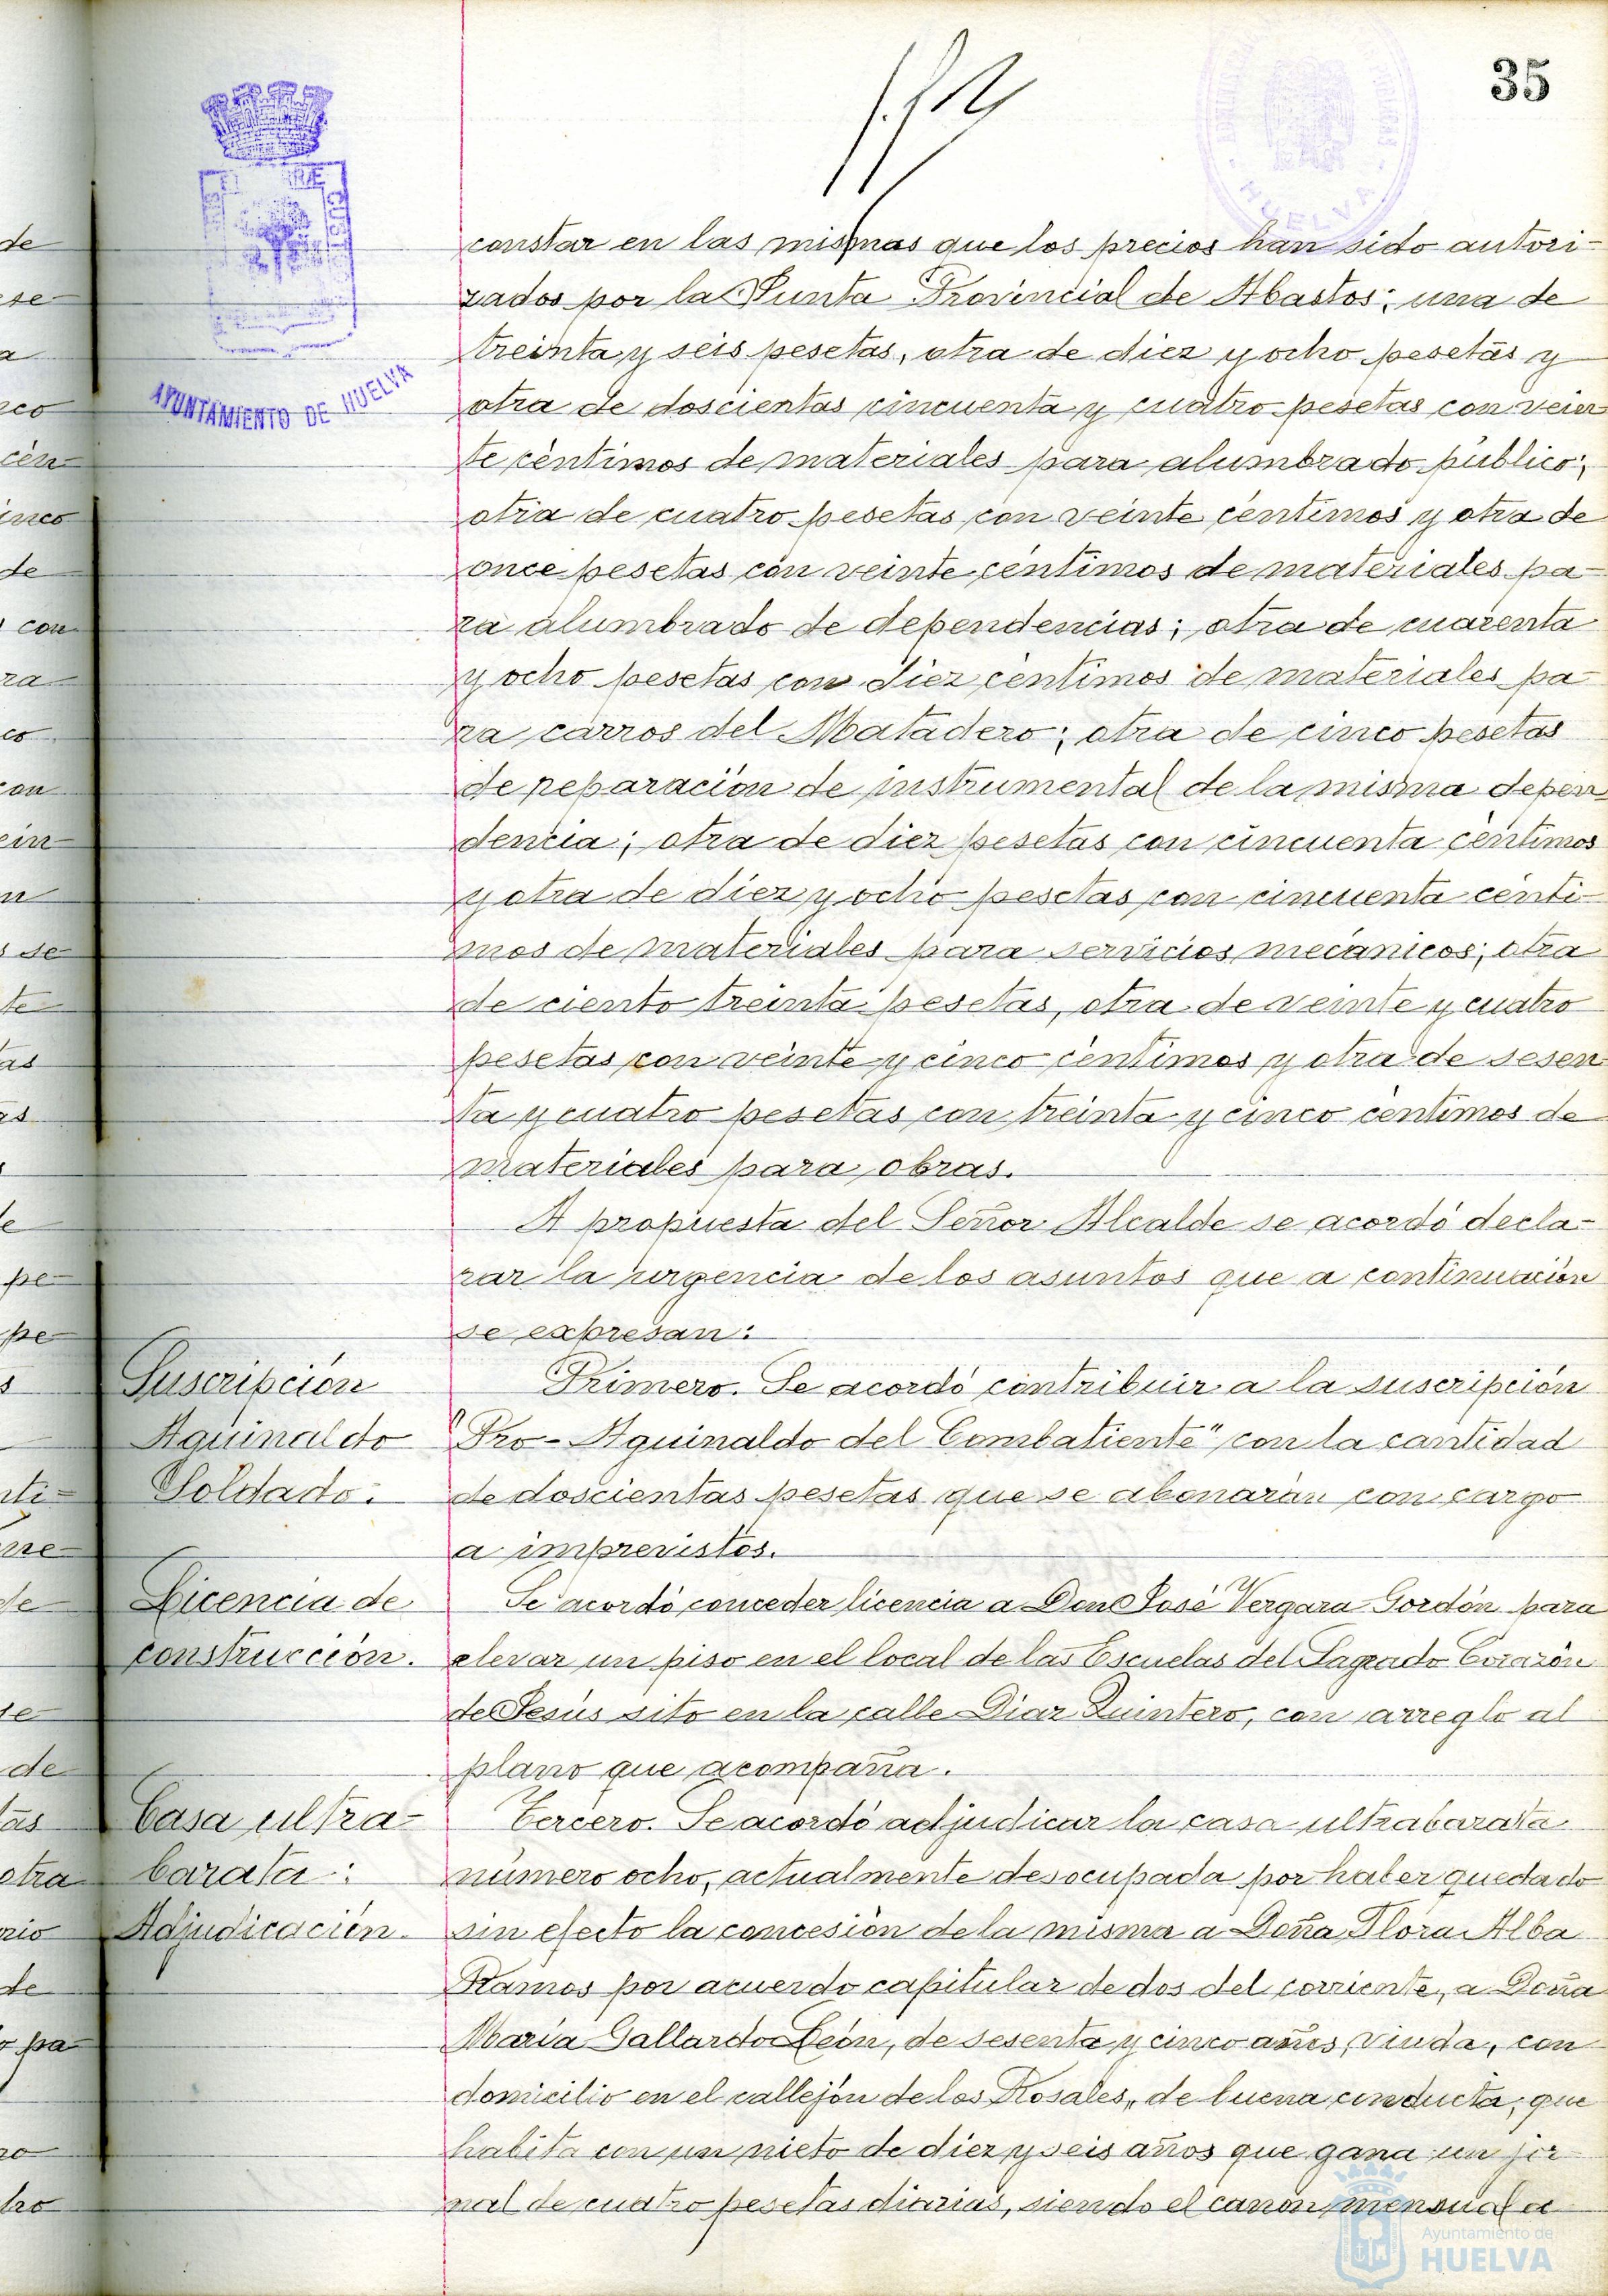 35
AYUNTAMIENTO DE HUELVA
HUELVA
constar en las mismas que los precios han sido autori-
zados por la Junta Provincial de Abastos; una de
treinta y seis pesetas, otra de diez y ocho pesetas y
otra de doscientas cincuenta y cuatro pesetas con vein
te céntimos de materiales para alumbrado público;
otra de cuatro pesetas con veinte céntimos y otra de
once pesetas con veinte céntimos de materiales pa-
ra alumbrado de dependencias; otra de cuarenta
y ocho pesetas con diez céntimos de materiales pa
ra carros del Matadero; otra de cinco pesetas
de reparación de instrumental de la misma depen
dencia; otra de diez pesetas con cincuenta céntimos
y otra de diez y ocho pesetas con cincuenta cénti-
mos de materiales para servicios mecánicos; otra
de ciento treinta pesetas, otra de veinte y cuatro
pesetas con veinte y cinco céntimos y otra de sesen
ta y cuatro pesetas con treinta y cinco céntimos de
materiales para obras.
A propuesta del Señor Alcalde se acordó decla-
rar la urgencia de los asuntos que a continuación
se expresan:
Suscripción
Aguinaldo
Soldado.
Primero. Se acordó contribuir a la suscripción
"Pro-Aguinaldo del Combatiente" con la cantidad
de doscientas pesetas que se abonarán con cargo
a imprevistos.
Licencia de
construcción.
Se acordó conceder licencia a Don José Vergara Gordón para
elevar un piso en el local de las Escuelas del Sagrado Corazón
de Jesús sito en la calle Diaz Quintero, con arreglo al
plano que acompaña.
Casa ultra-
barata:
Adjudicación.
Tercero. Se acordó adjudicar la casa ultrabarata
número ocho, actualmente desocupada por haber quedado
sin efecto la concesión de la misma a Doña Flora Alba
Ramos por acuerdo capitular de dos del corriente, a Doña
María Gallardo León, de sesenta y cinco años, viuda, con
domicilio en el callejón de los Rosales, de buena conducta, que
habita con un nieto de diez y seis años que gana un jor
nal de cuatro pesetas diarias, siendo el canon mensual a
Ayuntamiento de
HUELVA